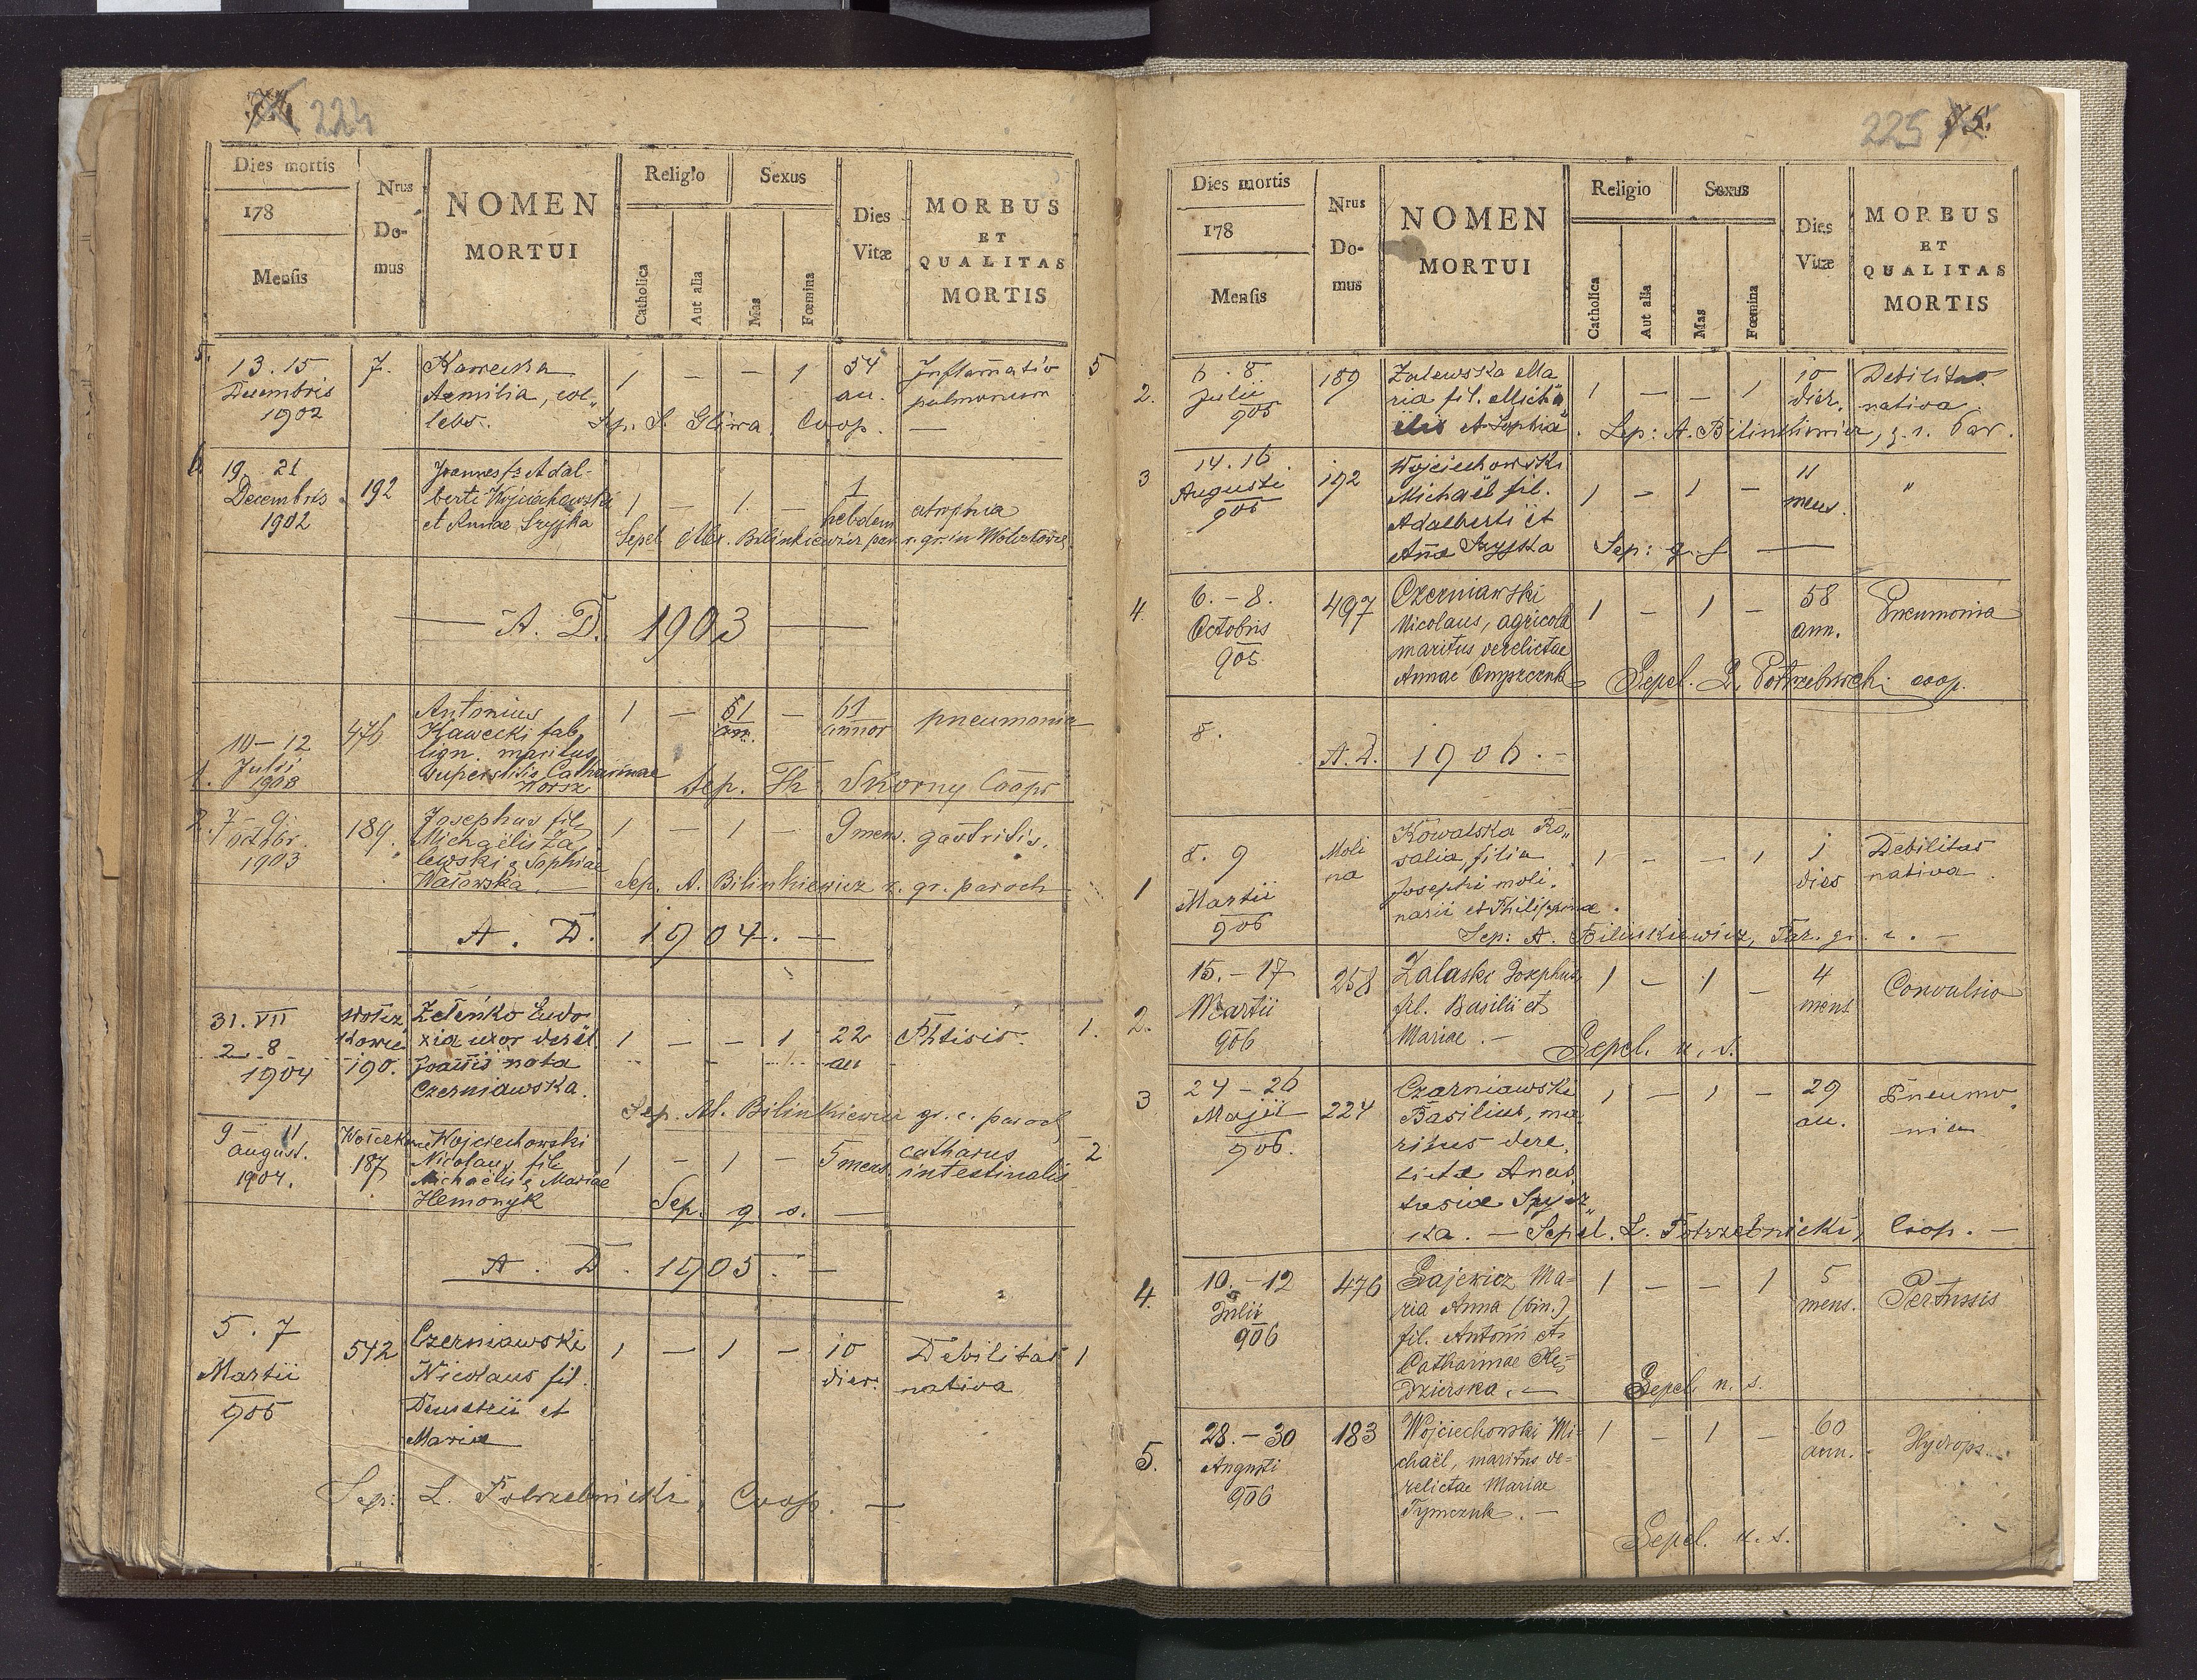 224
Dies mortis
178
Mensis
Nrus Do-mus
NOMEN
MORTUI
Religio
Catholica
Aut alia
Sexus
Mas
Fœmina
Dies
Vitæ
MORBUS
ET
QUALITAS
MORTIS
5.
13. 15
Decembris
1902
7.
Kawecka
Aemilia, coe„
lebs.
1 - - 1
54
an.
Inflam̄atio
pulmonum
5
Sep. S. Gliwa, Coop. —
6.
19. 21
Decembris
1902
192
Joannes fs Adal-
berti Wojciechowski
et Annae Szyjka
1 - 1. -
1
hebdom
atrophia
Sepel Alex. Bilinkiewicz par. r. gr. in
— A. D. 1903 —
1.
10 - 12
Julii
1903
476
Antonius
Kawecki fab
lign. maritus
superstitis Catharinae
1 - 61 an. -
61
annor
pneumonia
Sep. Th. Skorny Coops
2.
7 - 9
octobr.
1903
189.
Josephus fil
Michaëlis Za
lewski & Sophiae
1 - 1 -
9 mens. gastritis.
Sep. A. Bilinkiewicz r. gr. paroch
A. D. 1904. —
31. VII
2. 8
1904
190.
Zeleńko Eudo
xia uxor derel.
Joan̄is nata
Czerniawska.
1 - - 1
22
an
Phtisis.
1.
Sep. Al. Bilinkiewicz gr. c. paroch
9 11
august.
1904.
187
Wojciechowski
Nicolaus fil
Michaëlis & Mariae
Hemonyk
1 - 1 -
5 mens.
catharus
intestinalis
2
Sep. q. s. —
A. D. 1905. —
5. 7
Martii
905
542
Czerniawski
Nicolaus fil.
Demetrii et
Mariae
1 - 1 -
10
dier.
Debilitas
nativa
1
Sep: L. Potrzebnicki, Coop. —
225
75.
Dies mortis
178
Mensis
Nrus Do-mus
NOMEN
MORTUI
Religio
Catholica
Aut alia
Sexus
Mas
Fœmina
Dies
Vitæ
MORBUS
ET
QUALITAS
MORTIS
5
2.
6. 8
Julii
905
189
Zalewska Ma
ria fil. Micha
ëlis et Sophia
1 - - 1
10
dier.
Debilitas
nativa.
Sep: A. Bilinkiewicz, g. r. Par.
3
14. 16.
Augusti
905
192
Wojciechowski
Michaël fil.
Adalberti et
An̄a Szyjka
1 - 1 -
11
mens.
"
Sep: q. s —
4.
6. - 8.
Octobris
905
497
Czerniawski
Nicolaus, agricola
maritus derelictae
Annae
1 - 1 -
58
ann.
Pneumonia
Sepel. L. Potrzebnicki coop.
8.
A. D. 1906. -
1
8. 9
Martii
906
Moli
na
Kowalska Ro„
salia, filia
Josephi moli.
narii et Philippinae.
1 - - 1
1
dies
Debilitas
nativa.
Sep: A. Bilinkiewicz, Par. gr. c. —
2.
15. - 17
Martii
906
258
Zalaski Josephus
fil. Basilii et
Mariae. -
1 - 1 -
4
mens
Convulsio
Sepel. u. s.
3
24 - 26
Maji
906.
224
Czarniawski
Basilius, ma„
ritus dere.
lictae Anas
tasiae Szyjz„
ka. — Sepel. L. Potrzebnicki, Coop. —
1 - 1 -
29
an.
Pneumo„
nia
4.
10. - 12
Julii
906
476
Gajewicz Ma=
ria Anna (bin.)
fil. Antonii et
Catharinae Kę=
dzierska. —
1 - - 1
5
mens.
Pertussis
Sepel. u. s.
5.
28. - 30
Augusti
906
183
Wojciechowski Mi-
chaël, maritus de=
relictae Mariae
Tymczuk. —
1 - 1 -
60
ann.
Hydrops.
Sepel. u. s.